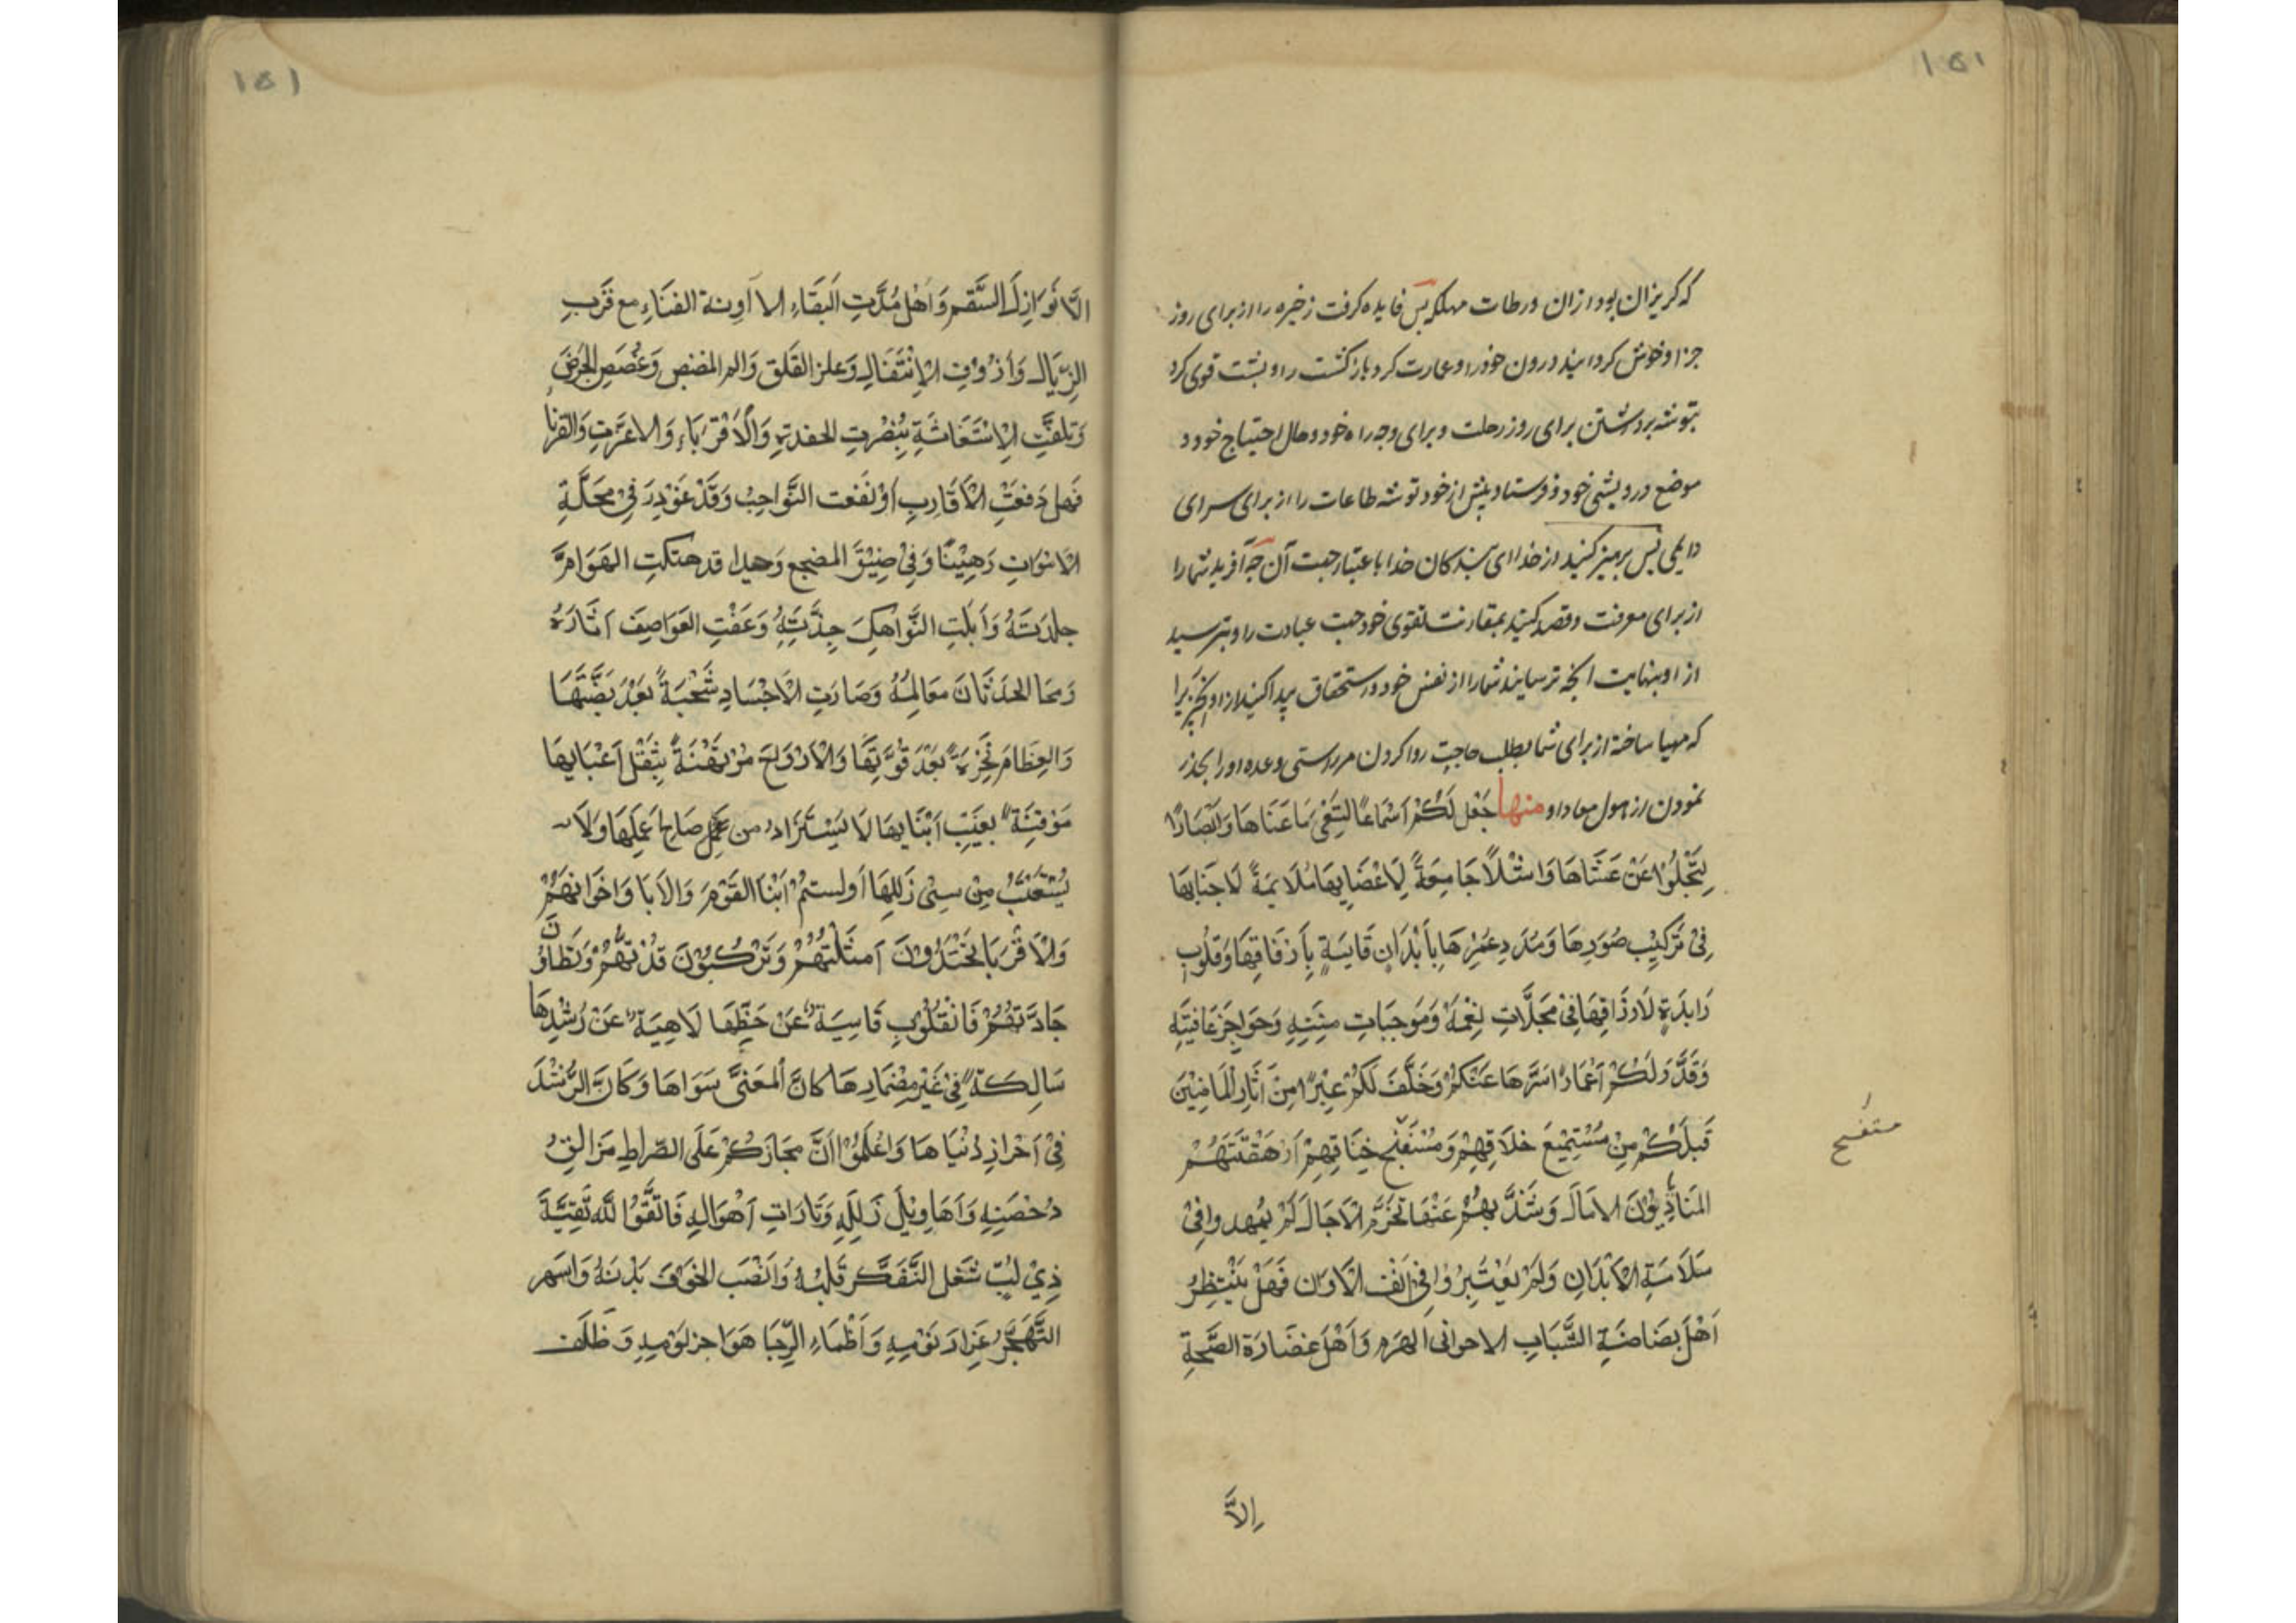 ۱۵۱
که کریزان بود از ان ورطات مهلکه پس فایده کرفت زخیره را از برای روز
جزا و خوش کردانید درون خود را و عمارت کرد بازکشت را و پشت قوی کرد
بتوشه برداشتن برای روز رحلت و برای وجه راه خود و حال احتیاج خود و
موضع درویشی خود و فرستاد پیش از خود توشه طاعات را از برای سرای
دایمی پس پرهیز کنید از خدا ای بندکان خدا باعتبار جهت آن چه آفرید شما را
از برای معرفت و قصد کنید بمقارنت تقوی خود جهت عبادت را و بترسید
از او بنهایت انچه ترسانید شما را از نفس خود و استحقاق پیدا کنید از او انچیزیرا
که مهیا ساخته از برای شما بطلب حاجت روا کردن مر راستی وعده او را بحذر
نمودن از هول معاد او منها جَعَلَ لَكُمْ اَسْمَاعًا لِتَعْیَ مَا عَنَاهَا وَابْصَارًا
لِتَجْلُوْا عَنْ عَشَاهَا وَاشْلَاً جَامِعَةً لِاَعْضَايِهَا مُلَايِمَةً لَاحنَايِهَا
فِیْ تَرْكِيْبِ صُوَرِهَا وَمُدَدِ عُمُرِهَا بِاَبْدَانٍ قَايِمَةٍ بِاَرْفَاقِهَا وَقُلُوْبٍ
رَابِدَةٍ لَارذَاقِهَا فِیْ مُجَلَّلَاتِ نِعْمَهٖ وَمَوجِبَاتِ مِنَنِهٖ وَحَوَاجِزِ عَافِيَتِهٖ
وَقَدَّرَ لَكُمْ اَعْمَارًا سَتَرَهَا عَنْكُمْ وَخَلَّفَ لَكُمْ عِبَرًا مِنْ اٰثَارِ الْمَاضِيْنَ
قَبْلَكُمْ مِنْ مُسْتَمْتِعِ خلَاقِهِمْ وَمُسْتَفْسَحِ خِنَاقِهِمْ اَرْهَقْتَهُمْ
متفسح
المَنَايَا دُوْنَ الاٰمَالَ وَشَذَّ بِهُمْ عَنْهَا تَخَرُّمُ الاٰجَالَ لَمْ يمْهدوا فِیْ
سَلَامَةِ الْاَبْدَانِ وَلَمْ يَعْتَبِرُوْا فِیْ اُنُفِ الْاَوَان فَهَلْ يَنْتَظِرُ
اَهْلُ بَضَاضَةِ الشَّبَابِ الا حوانی الهَرَمِ وَاَهْلُ غضَارَةِ الصِّحَّةِ
اِلاَّ
۱۵۱
الَّا نَوَازِلَ السَّقَمِ وَاَهْلُ مُدَّتِ البَقَاءِ الا آوِنة الفنَاءِ مع قُرْبِ
الزِّيَالِ وَاُزُوْفِ الْاِنْتَقَالِ وَعلز القَلَقِ وَالم المضضِ وَغُصَصِ الجَرَضِ
وَتلفتِ الْاِسْتَغَاثَةِ بِنُصْرتِ الحفدةِ وَالْاَقْرَبَاءِ وَالاعزَّتِ وَالقُرنَا
فَهَل دَفعَتِ الْاَقَارِبِ اَوْ نَفَعت النَّوَاحِبُ وَقَدْ غُوْدِرَ فِیْ مَحَلَّةِ
الْاَمْوَاتِ رَهِيْنًا وَفِیْ ضِيْقِ المضجع وَحيدا قد هتكتِ الهَوَامُّ
جلدَتَهُ وَاَبْلَتِ النَّوَاهِكُ جِدَّتَهُ وَعَفَتِ العَوَاصِفُ اٰثَارَهُ
وَمحَا الحَدَثَان مَعَالِمَهُ وَصَارَتِ الْاَجْسَادِ شَحْبَةً بَعْدَ بَضَّتَهَا
وَالعِظَامُ نَخِرَةً بَعْدَ قُوَّتِهَا وَالْاَرْوَاحَ مُرْتَهَنَةً بِثِقْلِ اَعْبَايِهَا
مُوْقِنَةً بِغَيْبِ اَنْبَايِهَا لَا يَسْتَزَاد من عَمَلِ صَالِحٍ عَمَلِهَا وَلَا
يُسْتَعْتَبُ مِنْ سیئی زَلَلِهَا اَولستمْ اَبْنَا القَوْمَ وَالاٰبَا وَاخَوَانهَمُ
وَالْاَقْرَبَا تَحْتَذُوْنَ اَمثَلتَهُمْ وَتَرْكَبُوْنَ قدتهُمْ وَتَطَاوُنَ
جَادَّتَهُمْ فَالْقُلُوْبِ قَاسِيَة عَنْ حَظِّهَا لَاهِيَة عَنْ رُشْدِهَا
سَالِكَة فِیْ غَيْرِ مِضْمَارِهَا كَانَّ المَعْنیَّ سَوَاهَا وَكَانَ الرُّشْدَ
فِیْ اَحْرَازِ دُنْيَاهَا وَاعْلَمُوْا اَنَّ مَجَازَكُمْ عَلَی الصِّرَاطِ مَزَالِقُ
دُحْضَنِهِ وَاَهَاوِيْلِ زَلَلِهِ وَتَارَاتِ اَهْوَالِهِ فَاتَّقُوْا لله تَقِيَّةَ
ذِیْ لُبٍّ شَغَل التَّفَكُّرُ قَلْبَهُ وَاَنْصَبَ الخَوْفُ بَدَنَهُ وَاسهَر
التَّهَجُّدُ غِرَارَ نَوْمِهِ وَاَظْمَاءِ الرِّجَا هَوَاجز يَوْمِهِ وَظَلَفَ